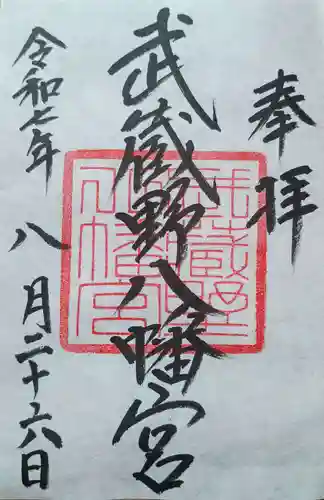 奉拝
武蔵野八幡宮
令和七年八月二十六日
武蔵野八幡宮